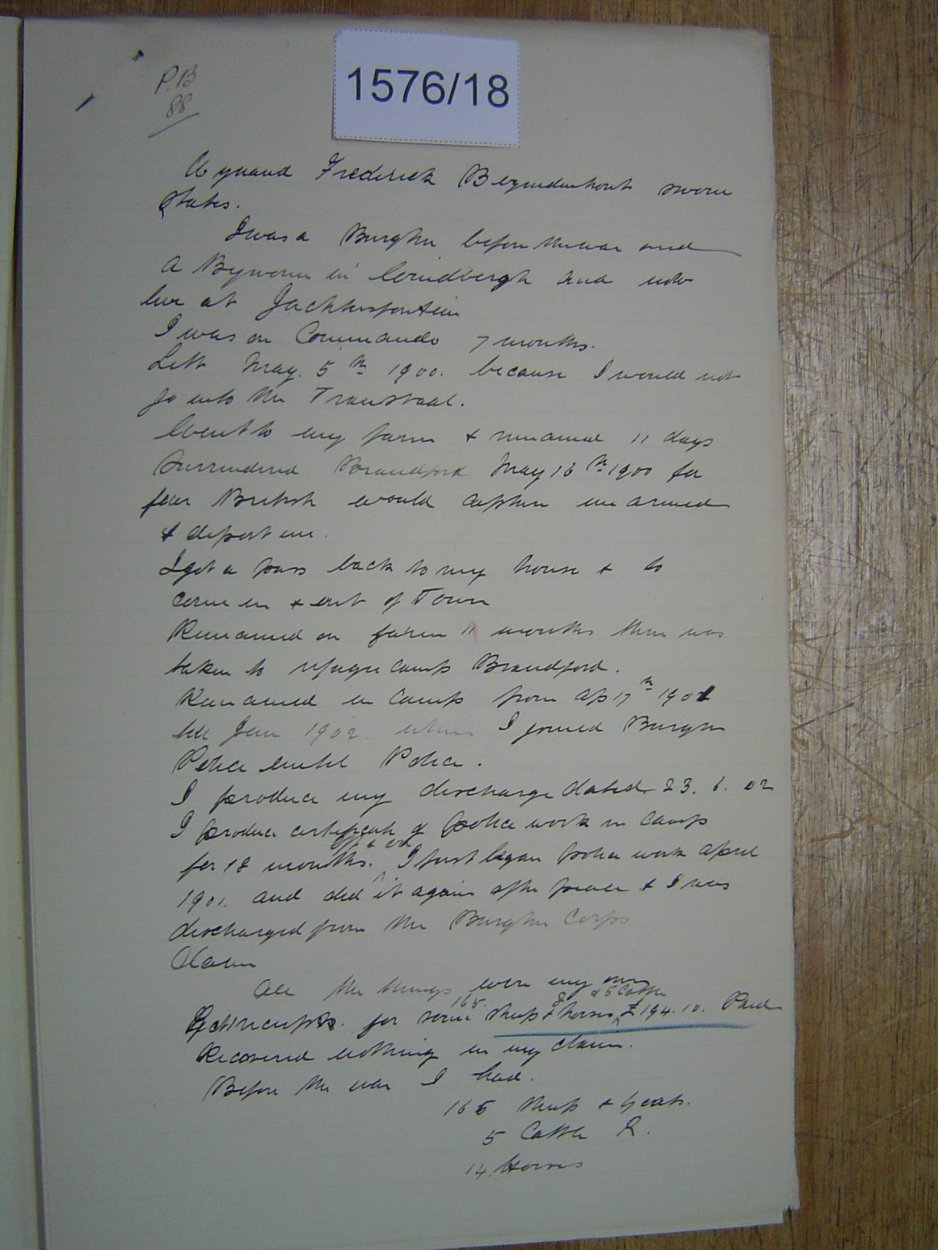 1576/18
P.B
88
Frederick Bezuidenhout sworn
states.
I was a Burgher before the war and
a Byworner in and now
live at Jackhalsfontein
I was on Commando 7 months.
Left May. 5th 1900. because I would not
go into the Transvaal.
Went to my farm & remained 11 days
Surrendered Brandford May 16th 1900 for
fear British would capture me armed
& deport me.
I got a pass back to my house & to
come in & out of Town
Remained on farm 11 months then was
taken to refugee camp Brandford.
Remained in Camp from Ap 17th 1901
till Jan 1902 when I joined Burgher
Police until Police.
I produce my discharge dated 23. 6. 02
I produce certificate of police work in camp
off & on
for 18 months. I first began police work april
1901 and did it again after peace & I was
discharged from the Burgher Corps
Claim
All the things were my own
165 2 & 5 Cattle
Got receipts for some sheep & horses £194.10. Paid
Recovered nothing in my claim.
Before the war I had.
165 sheep & goats.
5 Cattle R.
14 Horses